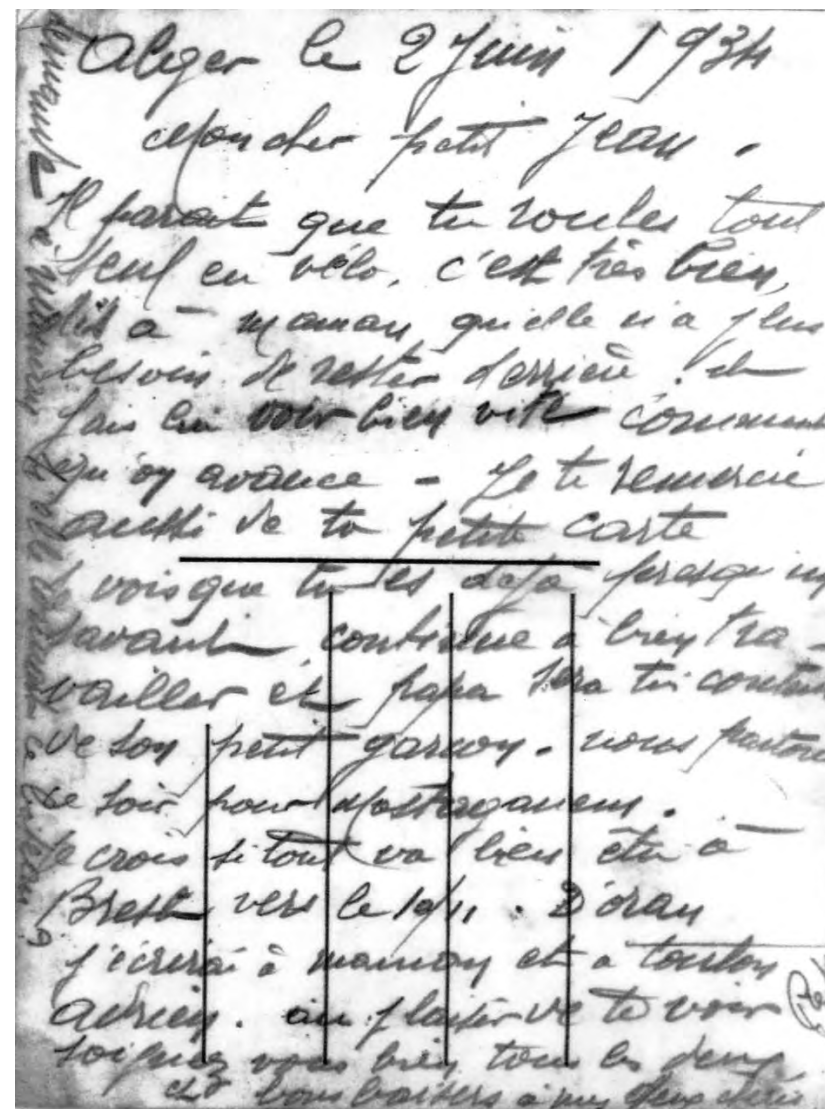 Alger le 2 Juin 1934
Mon cher petit Jean.
Il parait que tu roules tout
seul en vélo, c'est très bien,
dit à maman qu'elle n'a plus
besoin de rester derrière. et
fais lui voir bien vite comment
qu'on avance - Je te remercie
aussi de ta petite carte
Je vois que tu es deja presque un
savant continue à bien tra-
vailler et papa sera très content
de son petit garçon. nous partons
ce soir pour Mostaganem.
Je crois si tout va bien être à
Brest vers le 10/11. D'oran
j'écrirai à maman et a toulon
adrien. au plaisir de te voir
soignez vous bien tous les deux
et bons baisers à mes deux chéris
demande à maman